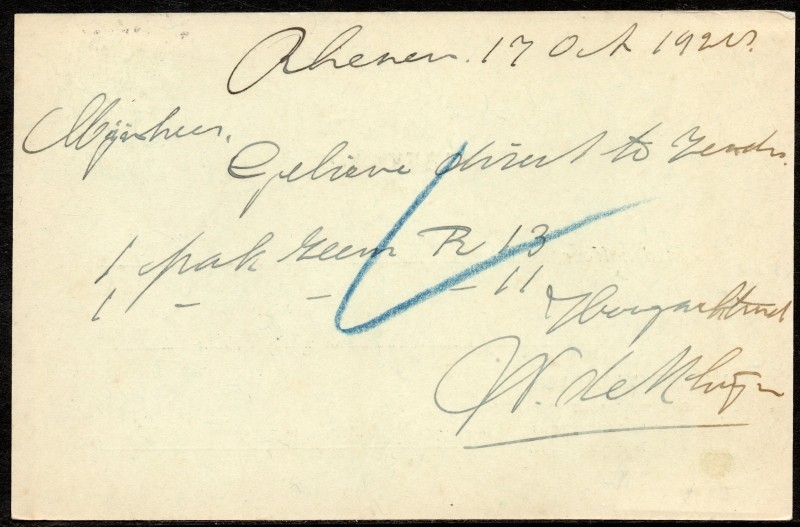 Rhenen. 17 Oct 192
Mijnheer,
Gelieve direct te zenden.
1 pak R 13
1 - - - 11
Hoogachtend
W. de